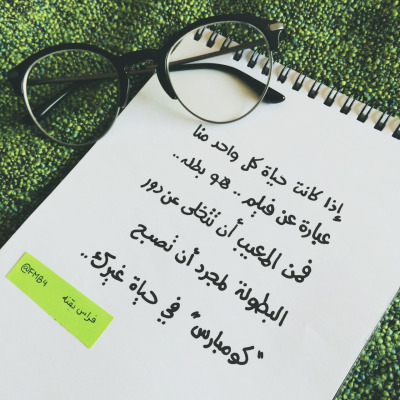 إذا كانت حياة كل واحد منا
عبارة عن فيلم .. هو بطله ..
فمن المعيب أن نتخلى عن دور
البطولة لمجرد أن نصبح
"كومبارس" في حياة غيرك ..
@FMB4
فراس بقنه